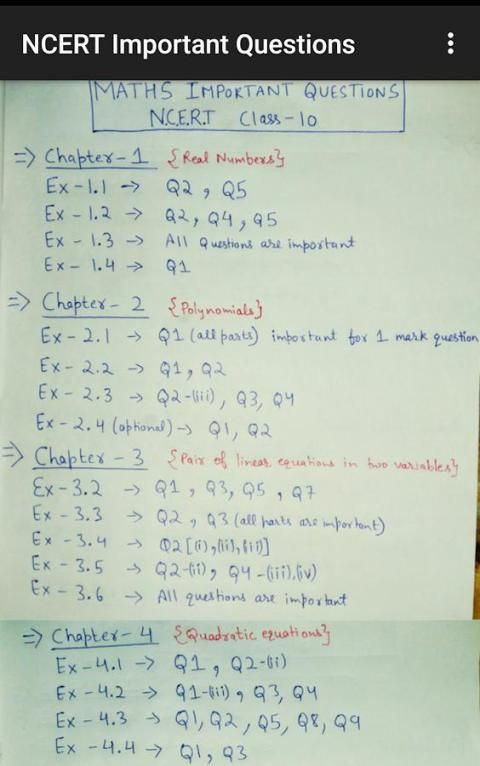 NCERT Important Questions
MATHS IMPORTANT QUESTIONS
N.C.E.R.T Class-10
=> Chapter-1 {Real Numbers}
Ex-1.1 -> Q2, Q5
Ex-1.2 -> Q2, Q4, Q5
Ex-1.3 -> All Questions are important
Ex-1.4 -> Q1
=> Chapter-2 {Polynomials}
Ex-2.1 -> Q1 (all parts) important for 1 mark question
Ex-2.2 -> Q1, Q2
Ex-2.3 -> Q2-(iii), Q3, Q4
Ex-2.4 (optional) -> Q1, Q2
=> Chapter-3 {Pair of linear equations in two variables}
Ex-3.2 -> Q1, Q3, Q5, Q7
Ex-3.3 -> Q2, Q3 (all parts are important)
Ex-3.4 -> Q2[(i),(ii),(iii)]
Ex-3.5 -> Q2-(ii), Q4-(iii),(iv)
Ex-3.6 -> All questions are important
=> Chapter-4 {Quadratic equations}
Ex-4.1 -> Q1, Q2-(ii)
Ex-4.2 -> Q1-(iii), Q3, Q4
Ex-4.3 -> Q1, Q2, Q5, Q8, Q9
Ex-4.4 -> Q1, Q3